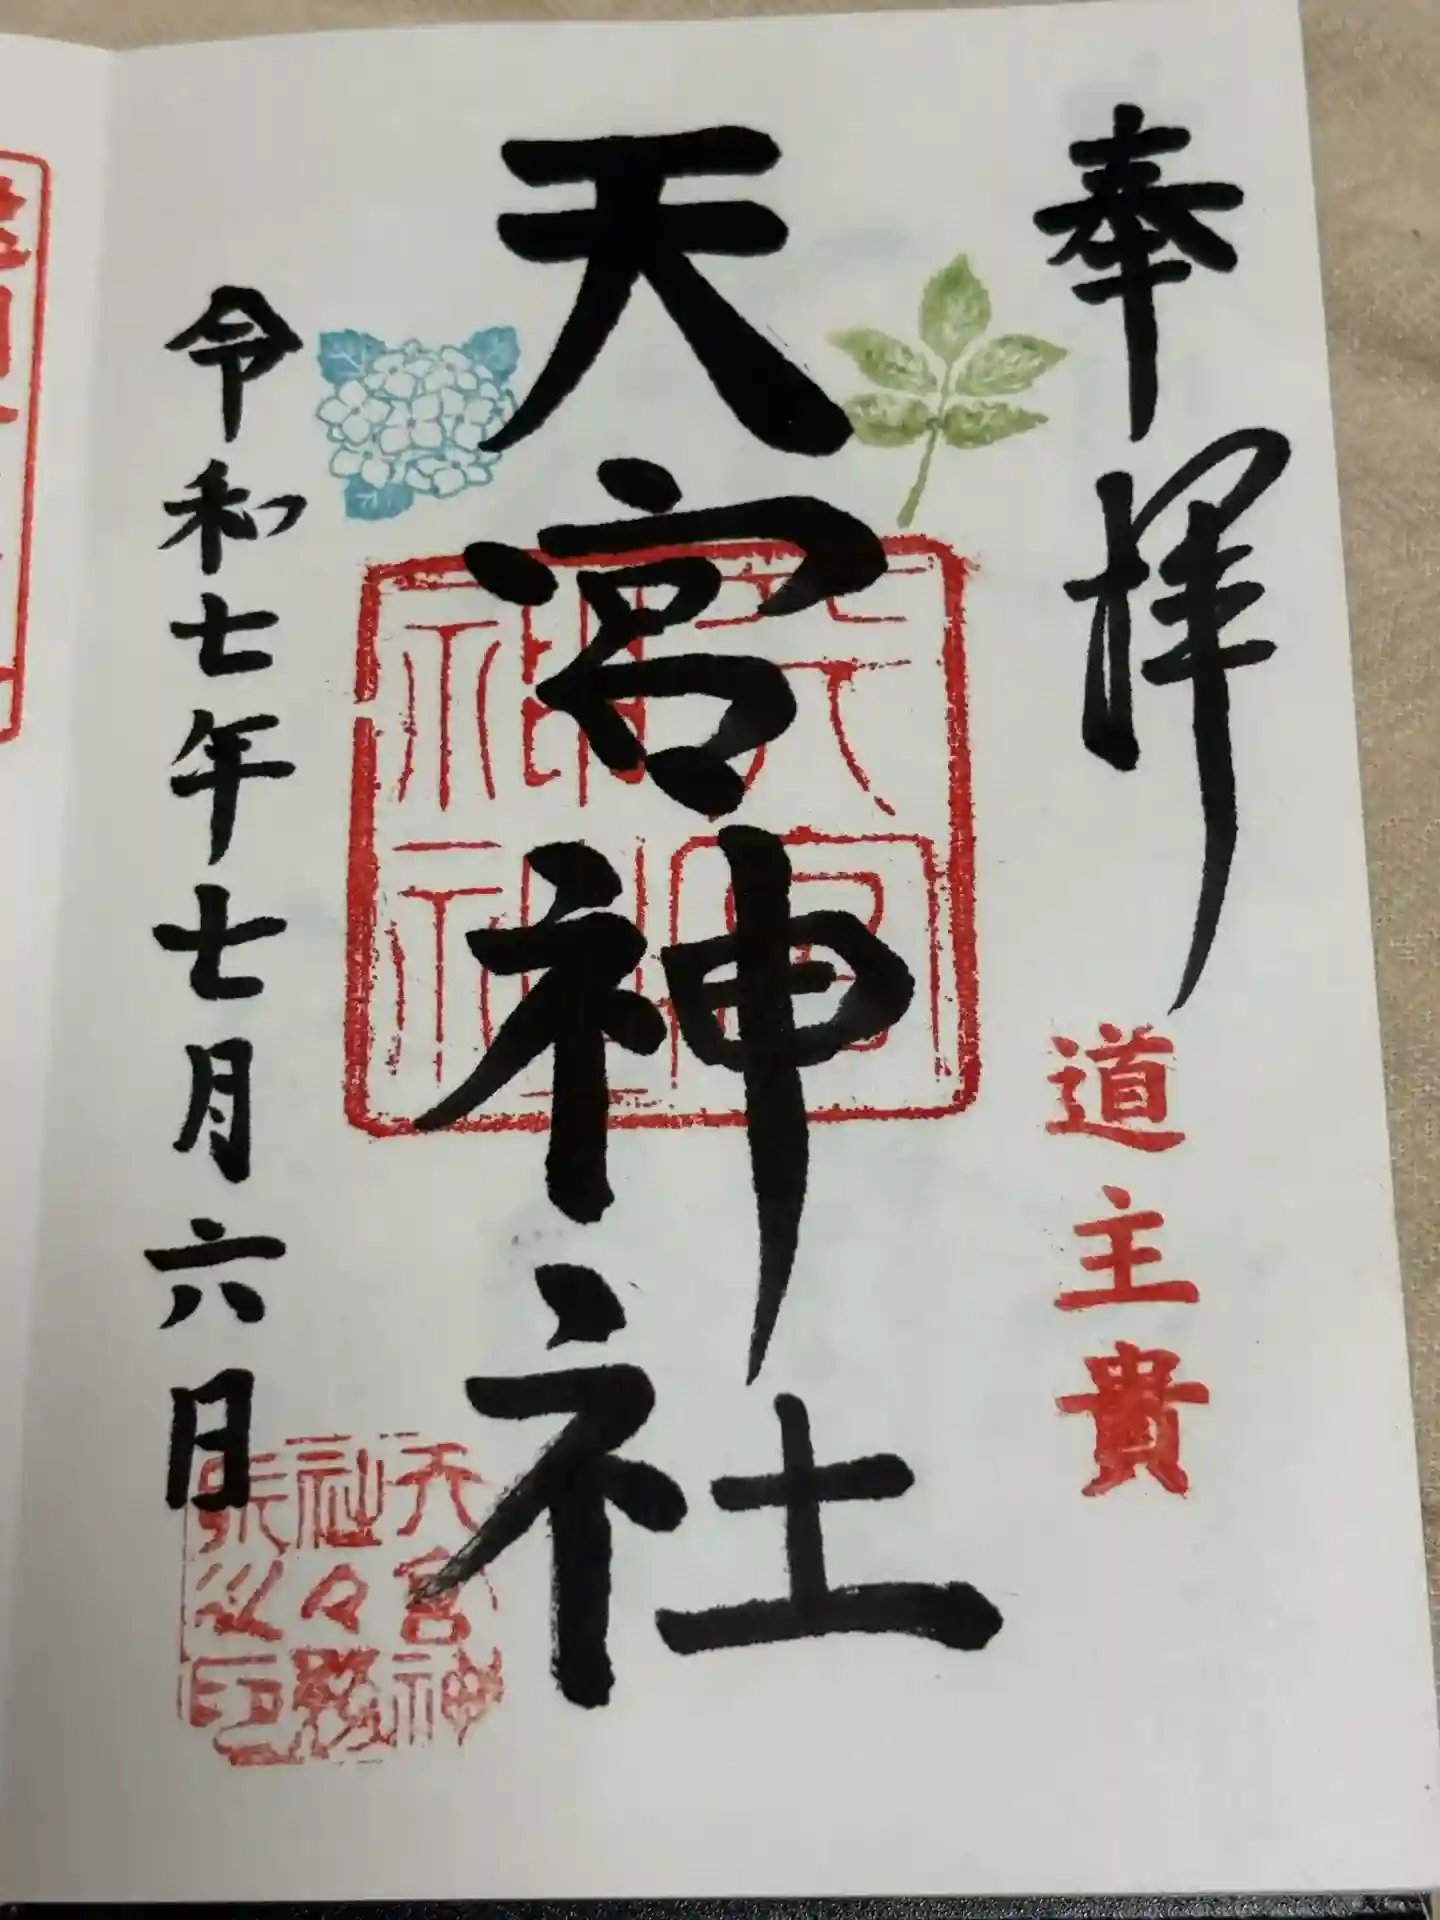 奉拝
道主貴
天宮神社
天宮神社
令和七年七月六日
天宮神
社々務
所之印